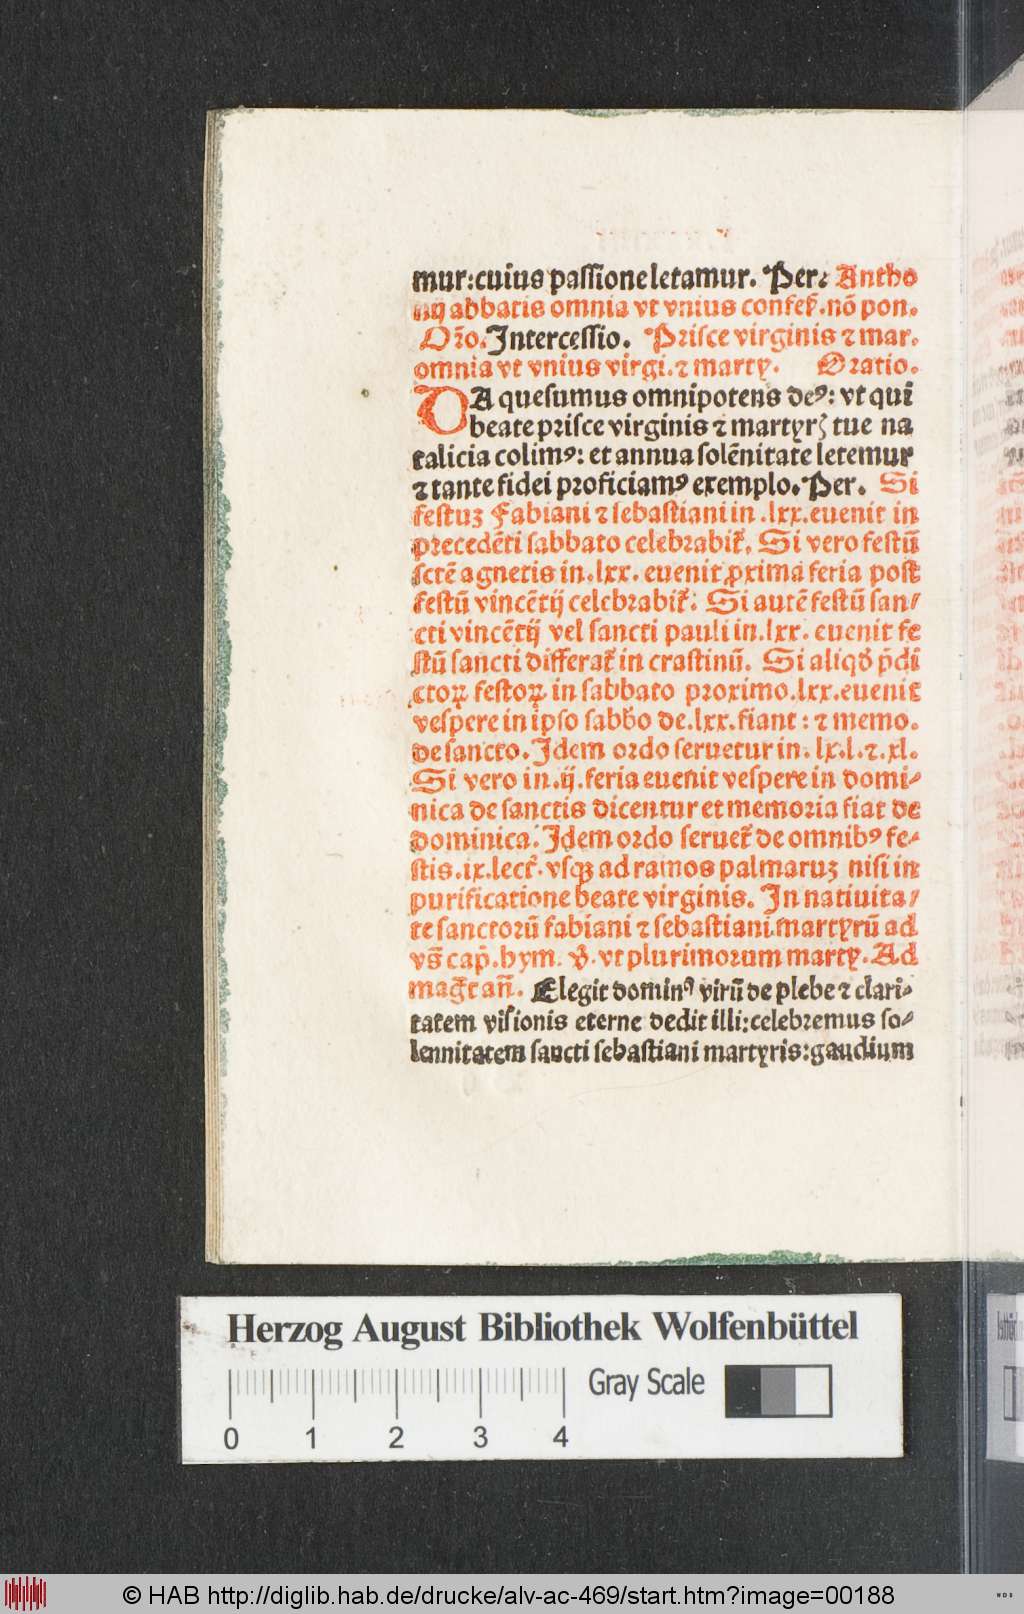 mur:cuius passione letamur. Per⁊ Antho
nij abbatis omnia vt vnius confeſ̃.nō pon.
Or̃o. Intercessio. Prisce virginis ⁊ mar.
omnia vt vnius virgi.⁊ marty. Oratio.
DA quesumus omnipotens deꝰ: vt qui
beate prisce virginis ⁊ martyrꝫ tue na
talicia colimꝰ: et annua solēnitate letemur
⁊ tante fidei proficiamꝰ exemplo. Per. Si
festuꝫ Fabiani ⁊ sebastiani in .lxx.euenit in
precedēti sabbato celebrabit̃. Si vero festū
sctē agnetis in .lxx. euenit ꝓxima feria post
festū vincētij celebrabit̃. Si autē festū san/
cti vincētij vel sancti pauli in.lxx. euenit fe
stū sancti differat̃ in crastinū. Si aliqđ p̄di
ctoꝝ festoꝝ in sabbato proximo.lxx.euenit
vespere in ipso sabb̄o de.lxx.fiant: ⁊ memo.
de sancto. Idem ordo seruetur in. lx.l.⁊.xl.
Si vero in .ij.feria euenit vespere in domi-
nica de sanctis dicentur et memoria fiat de
dominica. Idem ordo seruet̃ de omnibꝰ fe-
stis.ix.lect̃.vsqꝫ ad ramos palmaruꝫ nisi in
purificatione beate virginis. In natiuita/
te sanctorū fabiani ⁊ sebastiani.martyrū ad
vs̄ cap̄.hym. v̄.vt plurimorum marty. Ad
mag̃t an̄. Elegit dominꝰ virū de plebe ⁊ clari-
tatem visionis eterne dedit illi:celebremus so-
lennitatem sancti sebastiani martyris:gaudium
Herzog August Bibliothek Wolfenbüttel
Gray Scale
0 1 2 3 4
© HAB http://diglib.hab.de/drucke/alv-ac-469/start.htm?image=00188